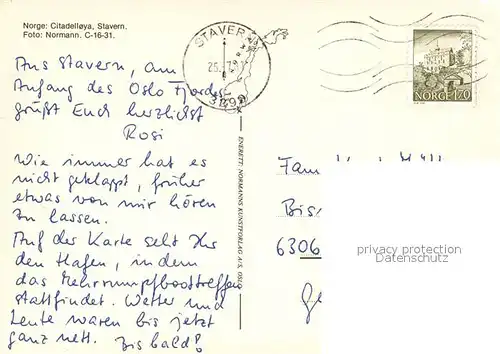 Norge: Citadelløya, Stavern.
Foto: Normann. C-16-31.
Aus Stavern, am
Anfang des Oslo Fjordes
grüßt Euch herzlichst
Rosi
Wie immer hat es
nicht geklappt, früher
etwas von mir hören
zu lassen.
Auf der Karte seht Ihr
den Hafen, in dem
das Mehrrumpfboottreffen
stattfindet. Wetter und
Leute waren bis jetzt
ganz nett. Bis bald!
ENERETT: NORMANNS KUNSTFORLAG A/S, OSLO
STAVERN
NORGE 120
Fam
Bis
6306
privacy protection
Datenschutz
Ge